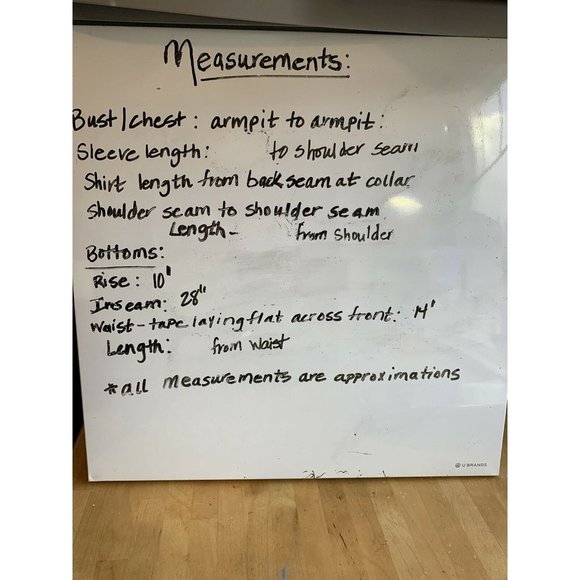 Measurements:
Bust/chest: armpit to armpit:
Sleeve length: to shoulder seam
Shirt length from back seam at collar
Shoulder seam to shoulder seam
Length- from shoulder
Bottoms:
Rise: 10"
Inseam: 28"
Waist-tape laying flat across front: 14"
Length: from waist
*all measurements are approximations
U BRANDS